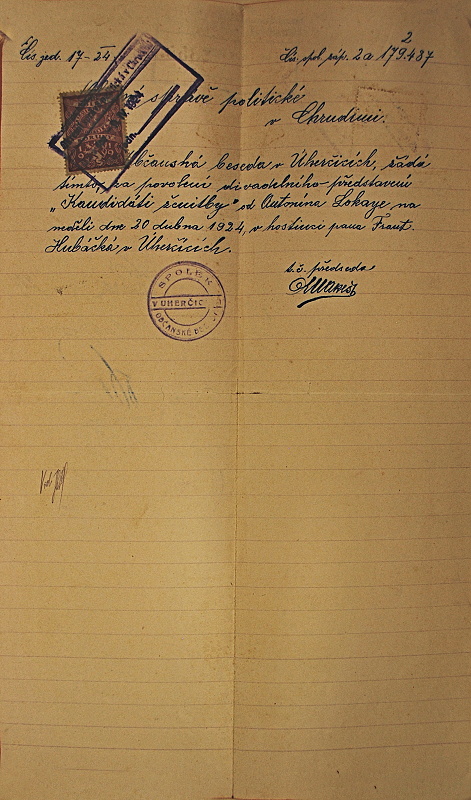 2
Čís. jed. 17-24.
Čís. spol. záp. 2a 179.437
správě politické
v Chrudimi.
Občanská beseda v Úherčicích, žádá
tímto, za povolení divadelního představení
„Kandidáti ženitby" od Antonína Lokaye na
neděli dne 20 dubna 1924, v hostinci pana Frant.
Hubáčka v Úherčicích.
t. č. předseda
SPOLEK
V ÚHERČIC
OBČANSKÉ